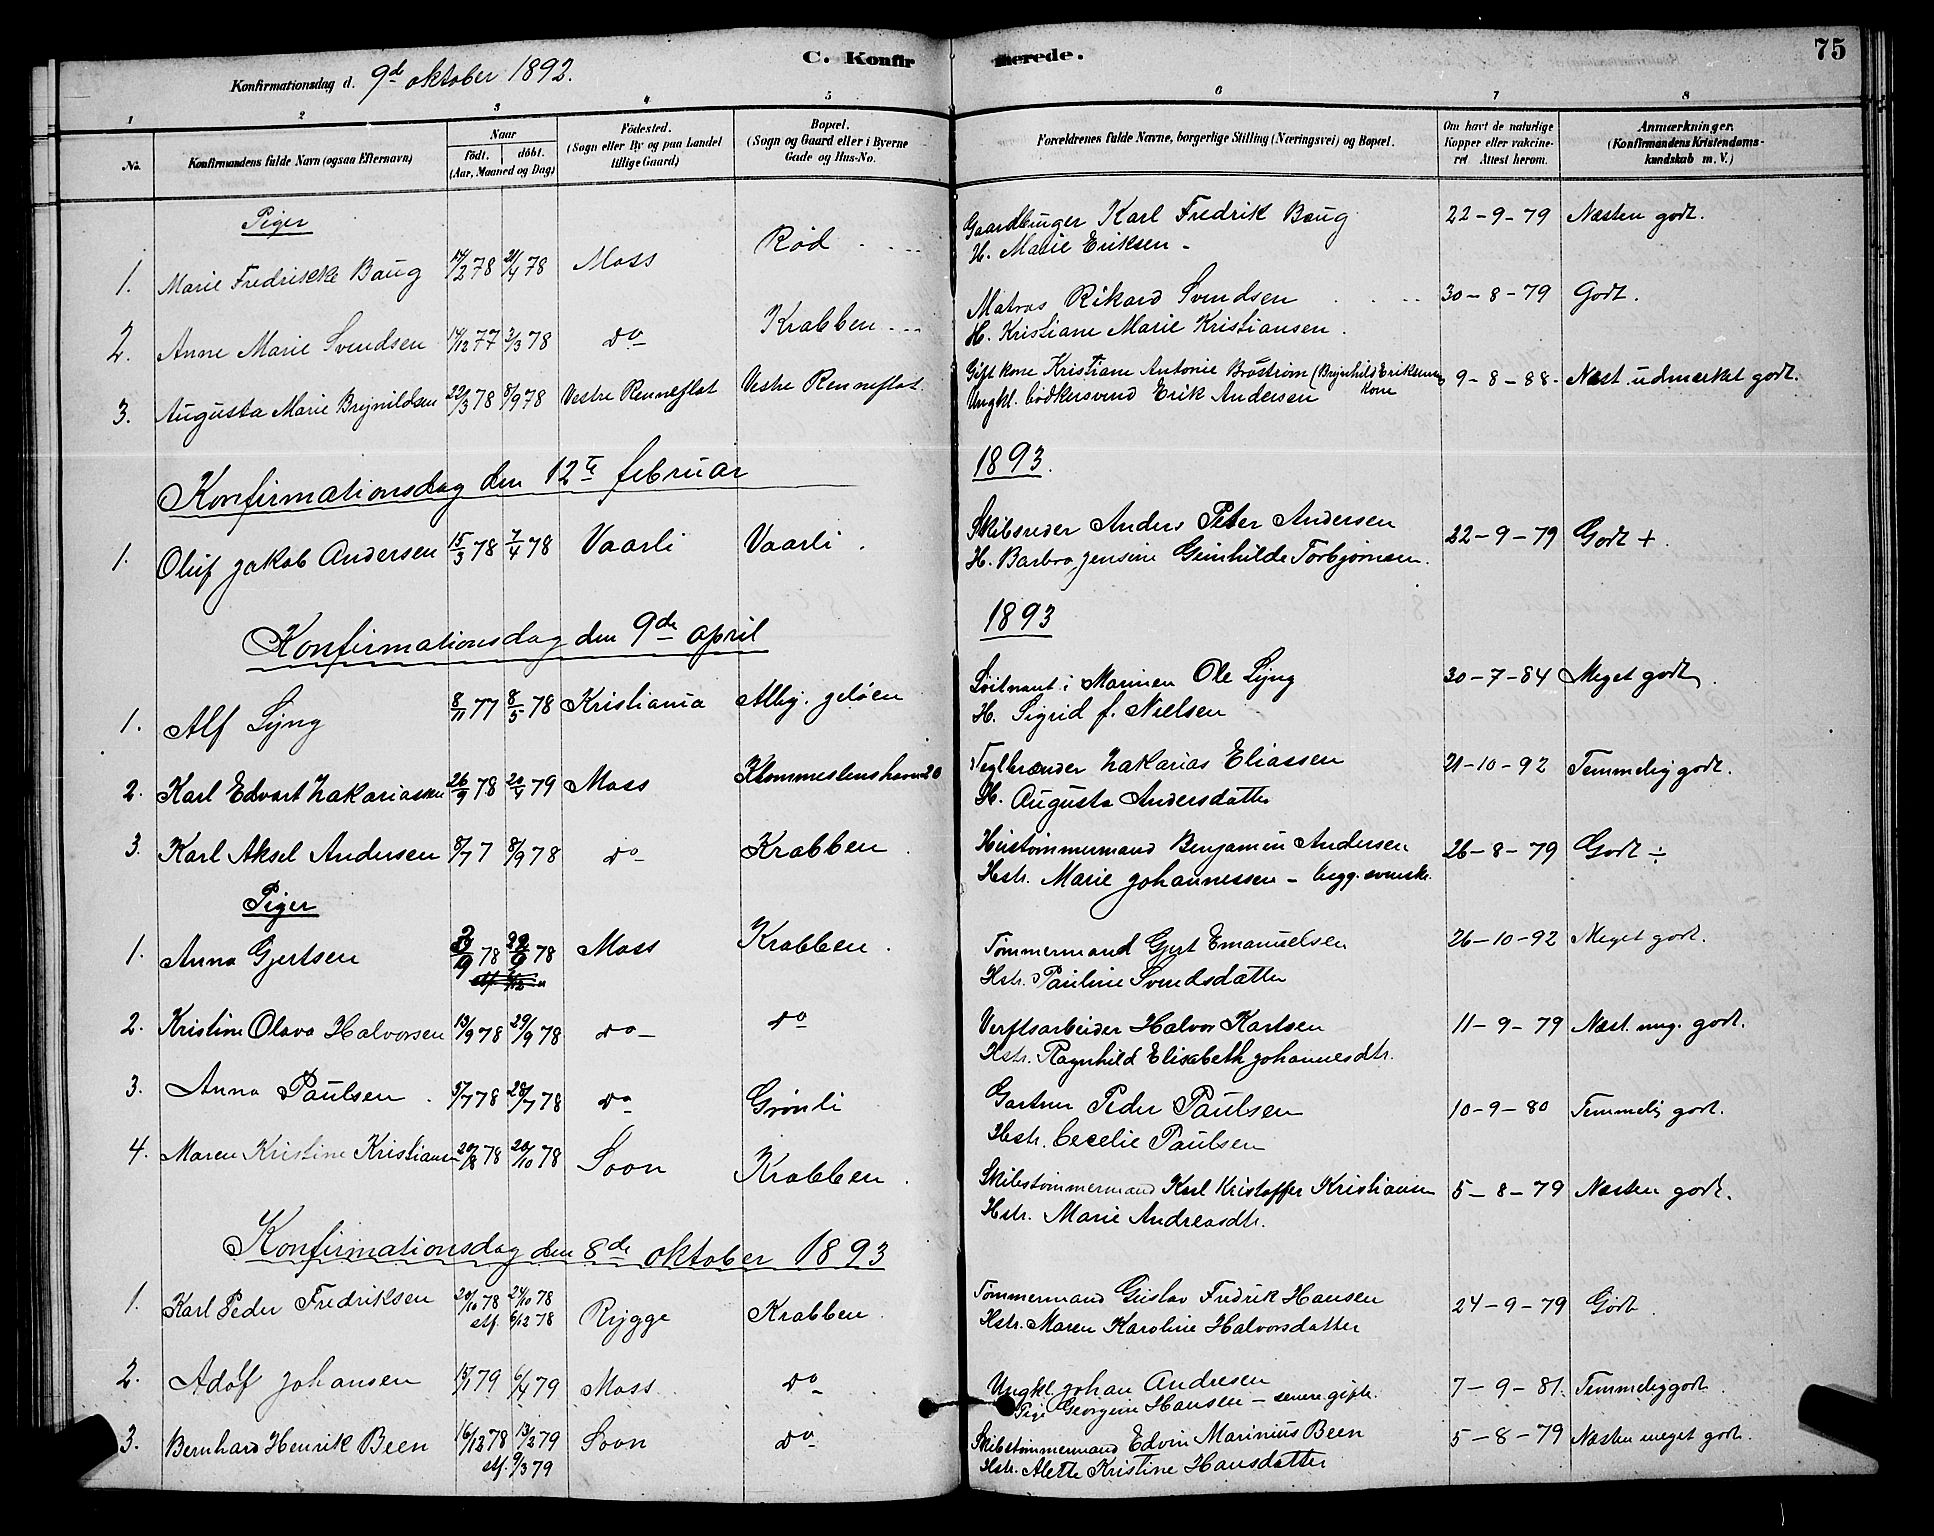 C. Konfirmerede.
75
Konfirmationsdag d. 9d oktober 1892.
1 2 3 4 5 6 7 8
No. Konfirmandens fulde Navn (ogsaa Efternavn) Naar födt. döbt. (Aar, Maaned og Dag) Födested. (Sogn eller By og paa Landet tillige Gaard) Bopæl. (Sogn og Gaard eller i Byerne Gade og Hus-No. Forældrenes fulde Navne, borgerlige Stilling (Næringsvei) og Bopæl. Om havt de naturlige Kopper eller vakcineret. Attest herom. Anmærkninger. (Konfirmandens Kristendomskundskab m. V.)
Piger
1. Marie Fredrikke Baug 14/2 78 21/4 78 Moss Rød Gaardbruger Karl Fredrik Baug 22-9-79 Næsten godt.
H. Marie Eriksen
2. Anne Marie Svendsen 14/12 77 3/3 78 do Krabben Matros Rikard Svendsen 30-8-79 Godt.
H. Kristiane Marie Kristiansen.
3. Augusta Marie Brynildsen 22/3 78 8/9 78 Vestre Renneflot Vestre Renneflot Gift kone Kristiane Antonie Brøstrøm (Brynhild Eriksens kone 9-8-88. Næst. udmerket godt.
Ungkl. bødkersvend Erik Andersen
Konfirmationsdag den 12te februar 1893.
1. Oluf Jakob Andersen 15/3 78 7/4 78 Vaarli Vaarli. Skibsreder Anders Peter Andersen 22-9-79 Godt +.
H. Barbra Jensine Gunhilde Torbjørnsen.
Konfirmationsdag den 9de april 1893
1. Alf Lyng 8/11 77 8/5 78 Kristiania Alby. Jeløen Løitnant i Marinen Ole Lyng 30-7-84 Meget godt.
H. Sigrid f. Nielsen
2. Karl Edvart Zakariassen 26/9 78 20/4 79 Moss Klommestenshavn 20 Teglbrænder Zakarias Eliassen 21-10-92 Temmelig godt.
H. Augusta Andersdatter
3. Karl Aksel Andersen 8/7 7 8/9 78 do Krabben. Hustømmermand Benjamin Andersen 26-8-79 Godt ÷
Hstr. Marie Johannessen - begg. svenske.
Piger
1. Anna Gjertsen 9 78 9 78 Moss Krabben. Tømmermand Gjert Emanuelsen 26-10-92 Meget godt.
Hstr. Pauline Svendsdatter
2. Kristine Olava Halvorsen 13/9 78 29/9 78 do do Verftsarbeider Halvor Karlsen 11-9-79 Næst. meg. godt.
Hstr. Ragnhild Elisabeth Johannesdtr.
3. Anna Paulsen 5/7 78 28/7 78 do Grønli Gartner Peder Paulsen 10-9-80 Temmelig godt.
Hstr. Cecelie Paulsen
4. Maren Kristine Kristiansen 20/8 78 20/10 78 Soon Krabben. Skibstømmermand Karl Kristoffer Kristiansen 5-8-79 Næsten godt.
Hstr. Marie Andreasdtr.
Konfirmationsdag den 8de oktober 1893
1. Karl Peder Fredriksen 20/10 78 24/10 78 Rygge Krabben. Tømmermand Gustav Fredrik Hansen 24-9-79 Godt.
stf. 6/12 78 Hstr. Maren Karoline Halvorsdatter
2. Adolf Johansen 15/1 79 6/4 79 Moss do Ungkl. Johan Andresen 7-9-81. Temmelig godt.
Pige Georgine Hansen - senere gifte.
3. Bernhard Henrik Been 16/12 78 13/2 79 Soon do Skibstømmermand Edvin Marinius Been 5-8-79 Næsten meget godt.
stf. 9/3 79 Hstr. Alette Kristine Hansdatter